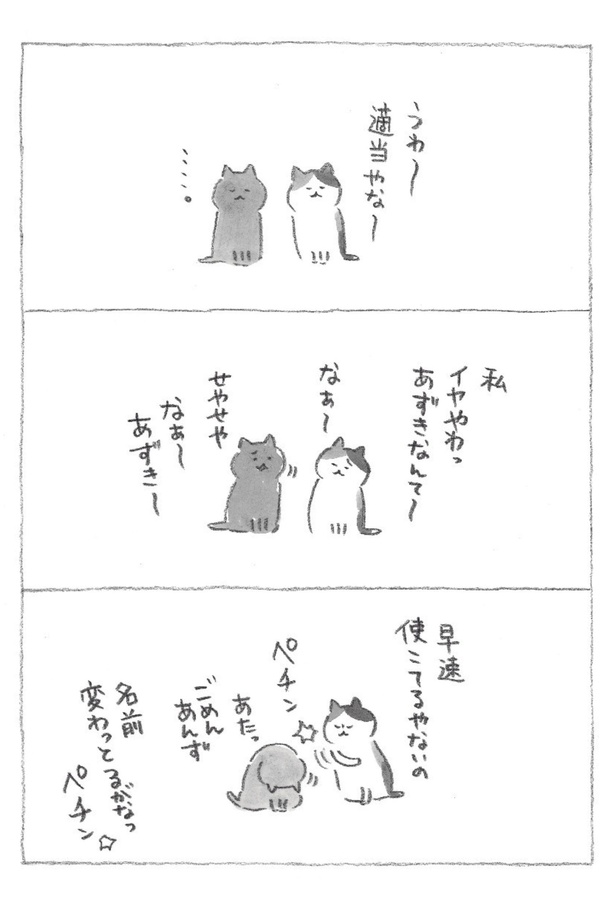 うわ〜
適当やな〜
・・・・。
私
イヤやわっ
あずきなんて〜
なぁ〜
せやせや
なぁ〜
あずき〜
早速
使こてるやないの
ペチン
あたっ
ごめん
あんず
名前
変わっとるがなっ
ペチン